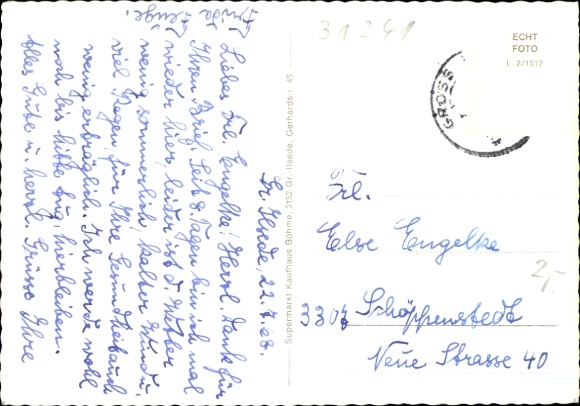 Gr. Ilsede, 22.7.68.
Liebes Frl. Engelke! Herzl. Dank für
Ihren Brief. Seit 8 Tagen bin ich mal
wieder hier, leider ist d. Wetter
wenig sommerlich, kalter Wind u.
viel Regen, für Ihre
wenig erträglich. Ich werde wohl
noch bis Mitte Aug. hierbleiben.
Alles Gute u. herzl. Grüsse Ihre
Frieda
Supermarkt Kaufhaus Böhme, 3152 Gr.-Ilsede, Gerhardstr. 45
31241
ECHT
FOTO
I. 2/1512
GROSS
Frl.
Else Engelke
3307 Schöppenstedt
Neue Strasse 40
2,-